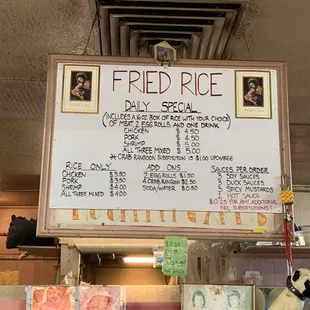 FRIED RICE
DAILY SPECIAL
(INCLUDES A 16 OZ. BOX OF RICE WITH YOUR CHOICE
OF MEAT, 2 EGG ROLLS, AND ONE DRINK)
CHICKEN $ 4.50
PORK $ 4.50
SHRIMP $ 5.00
ALL THREE MIXED $ 5.00
* CRAB RANGOON SUBSTITUTION IS $1.00 UPCHARGE
RICE ONLY
CHICKEN $3.50
PORK $3.50
SHRIMP $4.00
ALL THREE MIXED $4.00
ADD ONS
2 EGG ROLLS $1.50
4 CRAB RANGOON $2.50
SODA/WATER $0.50
SAUCES PER ORDER
3 SOY SAUCES
1 DUCK SAUCES
1 SPICY MUSTARDS
1 HOT SAUCE
$0.25 FOR ANY ADDITIONAL
NO REFUNDS!